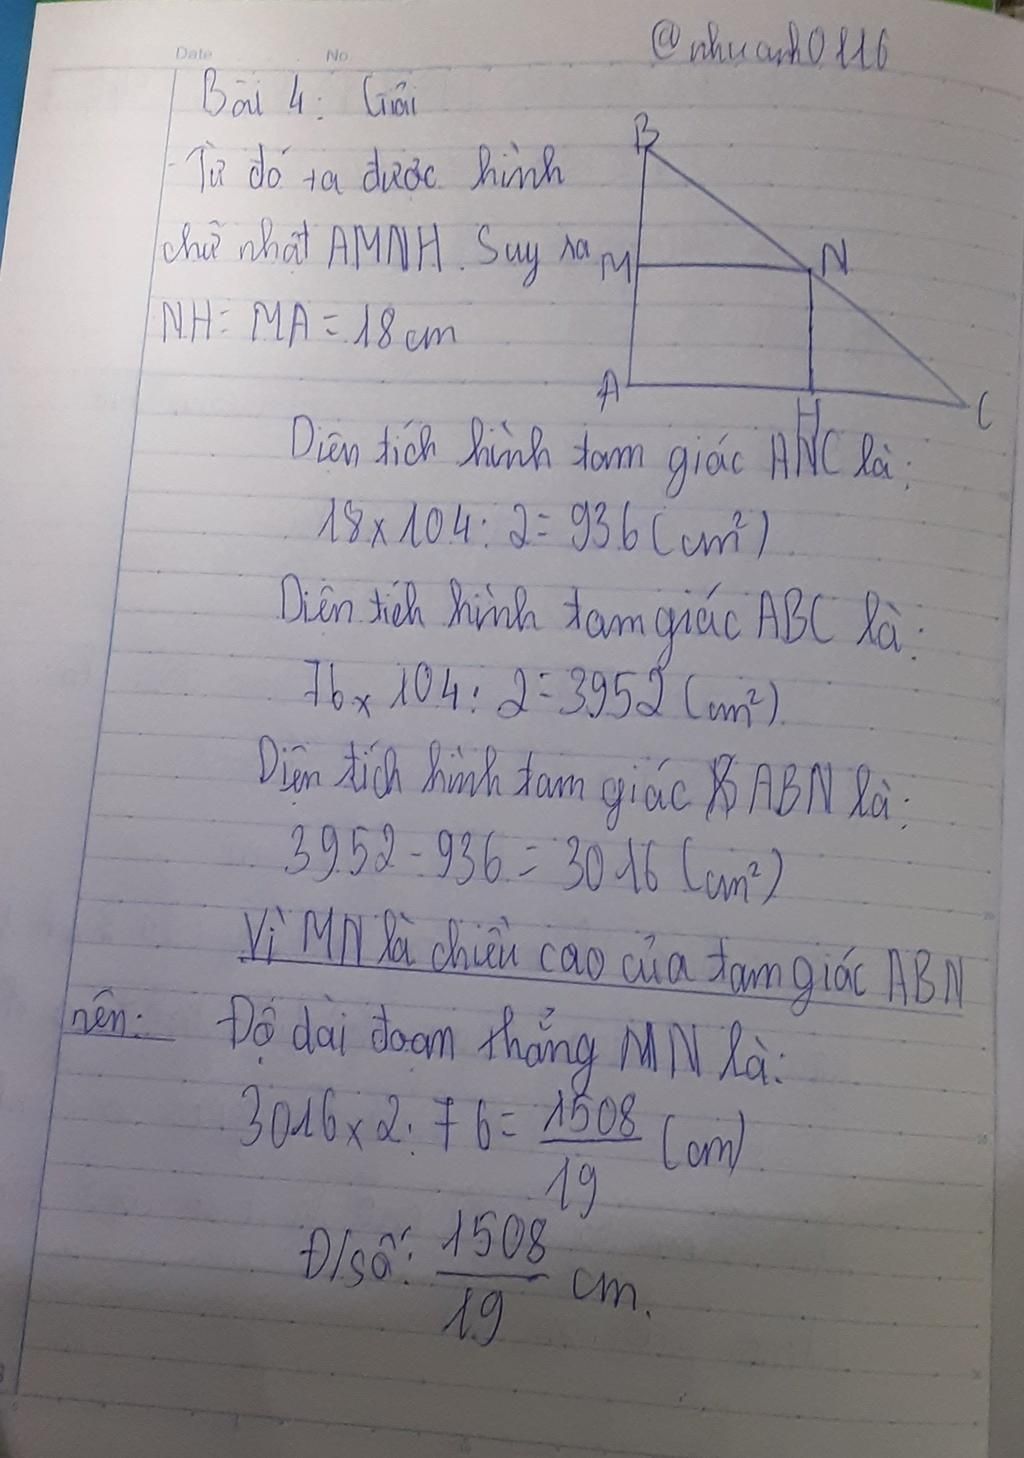 Date No
@nhuanh0116
Bài 4: Giải
- Từ đó ta được hình
chữ nhật AMNH. Suy ra
NH = MA = 18 cm
B
M
N
A
H
C
Diện tích hình tam giác ANC là:
18 x 104 : 2 = 936 (cm²)
Diện tích hình tam giác ABC là:
76 x 104 : 2 = 3952 (cm²)
Diện tích hình tam giác ABN là:
3952 - 936 = 3016 (cm²)
Vì MN là chiều cao của tam giác ABN
nên: Độ dài đoạn thẳng MN là:
3016 x 2 : 76 = 1508/19 (cm)
Đ/số: 1508/19 cm.